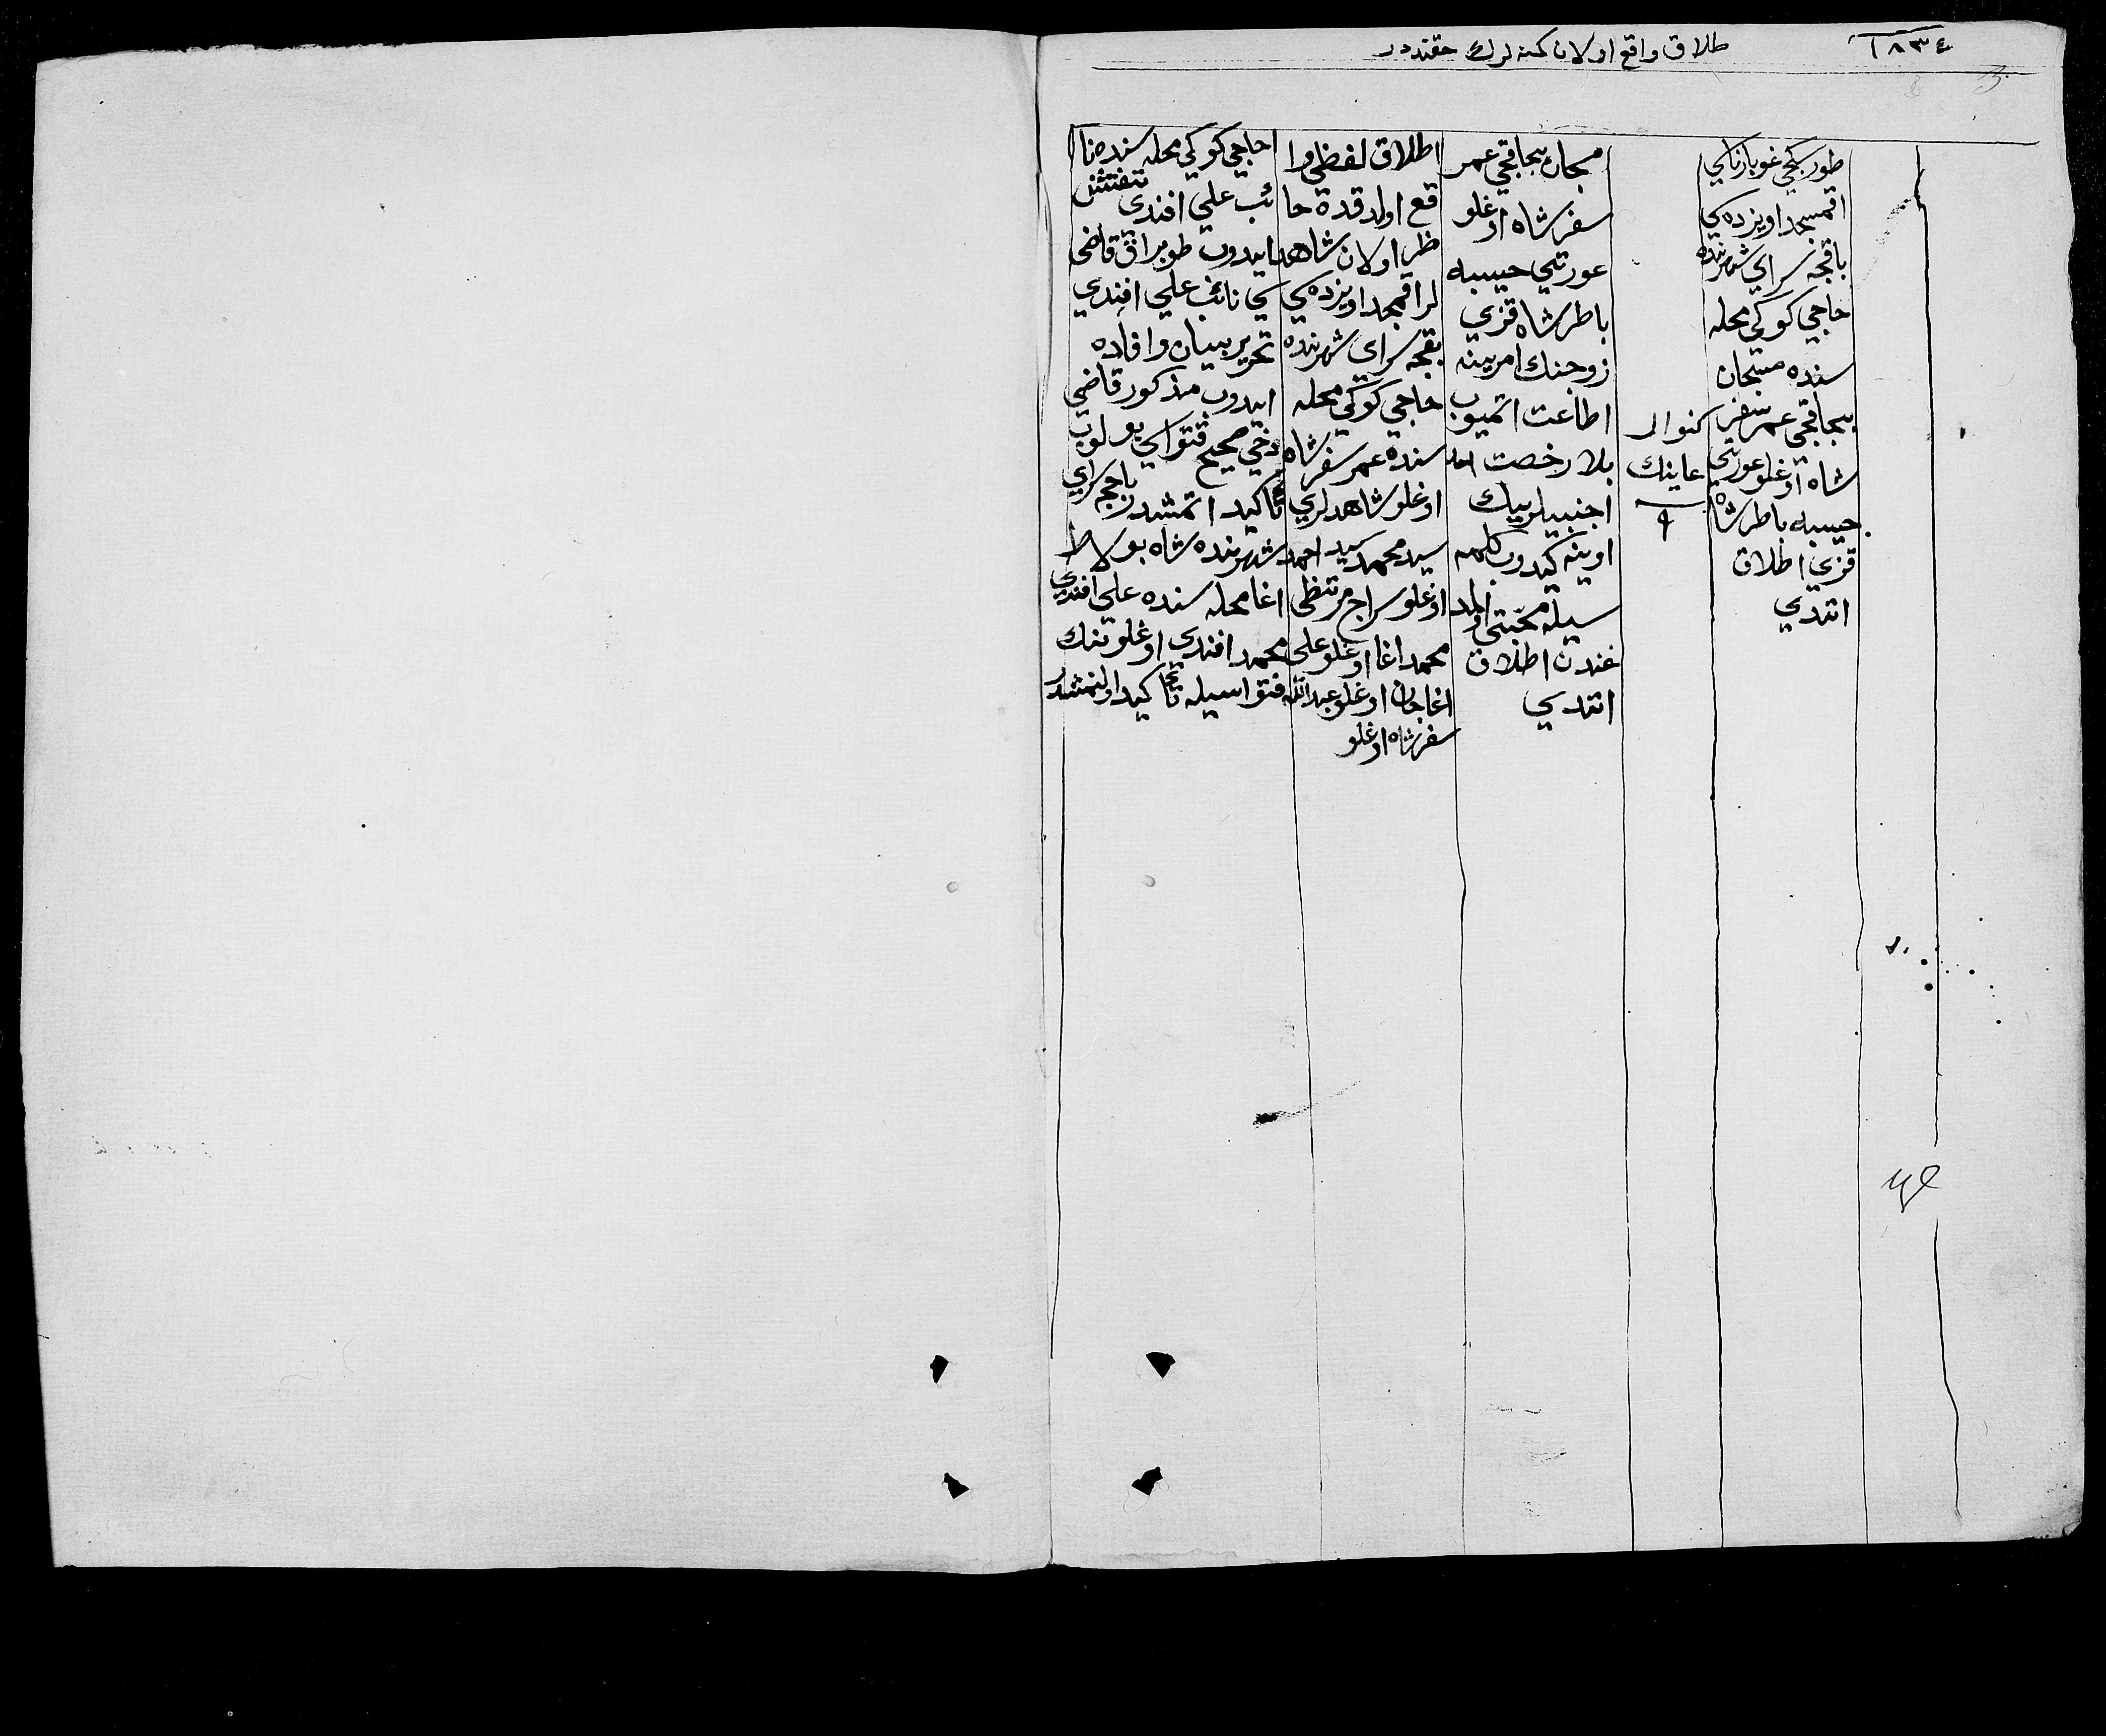 ١٨٣٤
طلاق واقع اولان كمسنه لرك حقنده در
طوريكجي غوبارناسكي
اقمسجد اويزده كي
باقچه سراي شهرنده
حاجي كوكي محله
سنده مستجان
بچاقجي عمر سفر
شاه اوغلو عورتي
حبيبه باطرشاه
قزي اطلاق
اتدي
كنوار
عاينك
٩
مجان بچاقجي عمر
سفرشاه اوغلو
عورتي حبيبه
باطرشاه قزي
زوجنك امرينه
اطاعت اتميوب
بلا رخصت
اجنبيلرينك
اوينه كيدوب كلمه
سيله محبتي اولمد
غندن اطلاق
اتدي
اطلاق لفظي وا
قع اولدقده حا
ظر اولان شاهد
لر اقمسجد اويزده كي
بقچه سراي شهرنده
حاجي كوكي محله
سنده عمر سفر شاه
اوغلو شاهدلري
سيد محمد سيد احمد
اوغلو سراج مرتظى
محمد اغا اوغلو على
اغاجان اوغلو عبدالله
سفرشاه اوغلو
حاجي كوكي محله سنده نا
ئب علي افندي تفتيش
ايدوب طوبراق قاضى
سي نائب علي افندي
تحرير بيان و افاده
ايدوب مذكور قاضي
دخي صحيح فتواي بولوب
تاكيد اتمشدر باقچه سراي
شهرنده شاه بولاط
اغا محله سنده علي افندي
محمد افندي اوغلوننك
فتواسيله تاكيد اولنمشدر